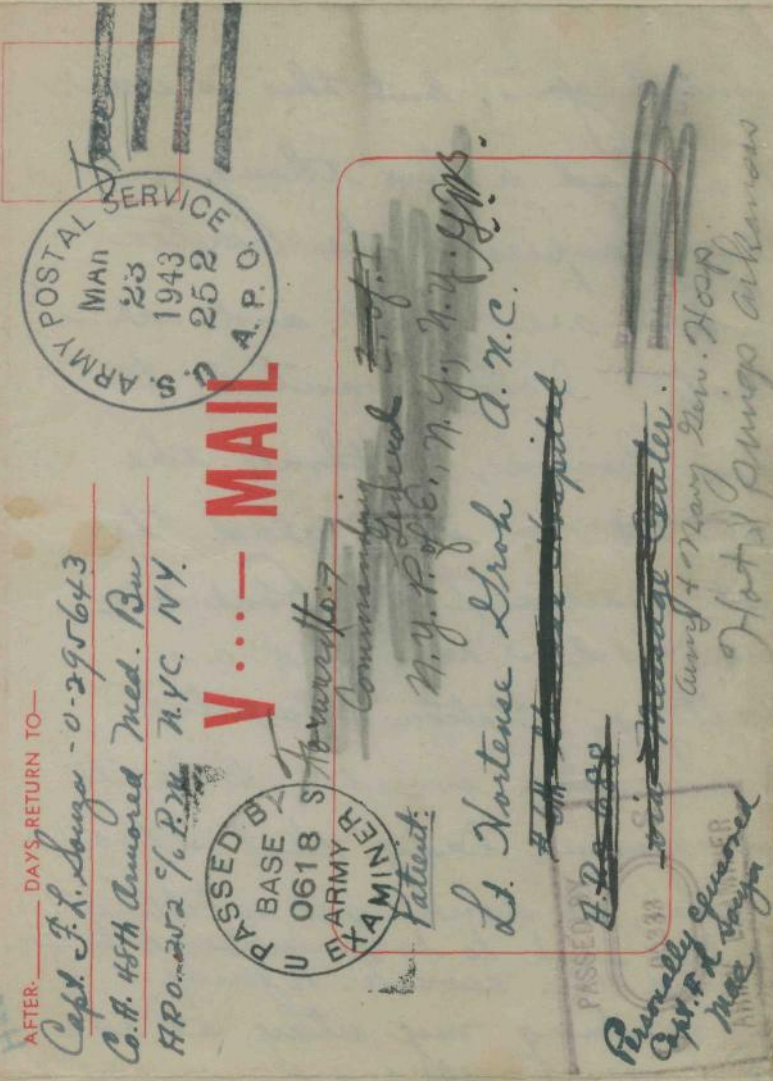 AFTER-______ DAYS, RETURN TO—
Capt. F. L. Souza - O-295643
Co. A. 48th Armored Med. Bn
APO-252 c/o P.M. N.Y.C. N.Y.
U.S. ARMY POSTAL SERVICE
MAR
23
1943
252
A.P.O.
Free
V...— MAIL
PASSED BY
BASE
0618
U S ARMY
EXAMINER
Forward to:
Commanding
General
N.Y. P. of E., N.Y., N.Y.
Patient:
Lt. Hortense Groh A.N.C.
Hospital
A.P.O.
Army & Navy Gen. Hosp.
Hot Springs Arkansas
PASSED BY
Personally censored
Capt. F L Souza